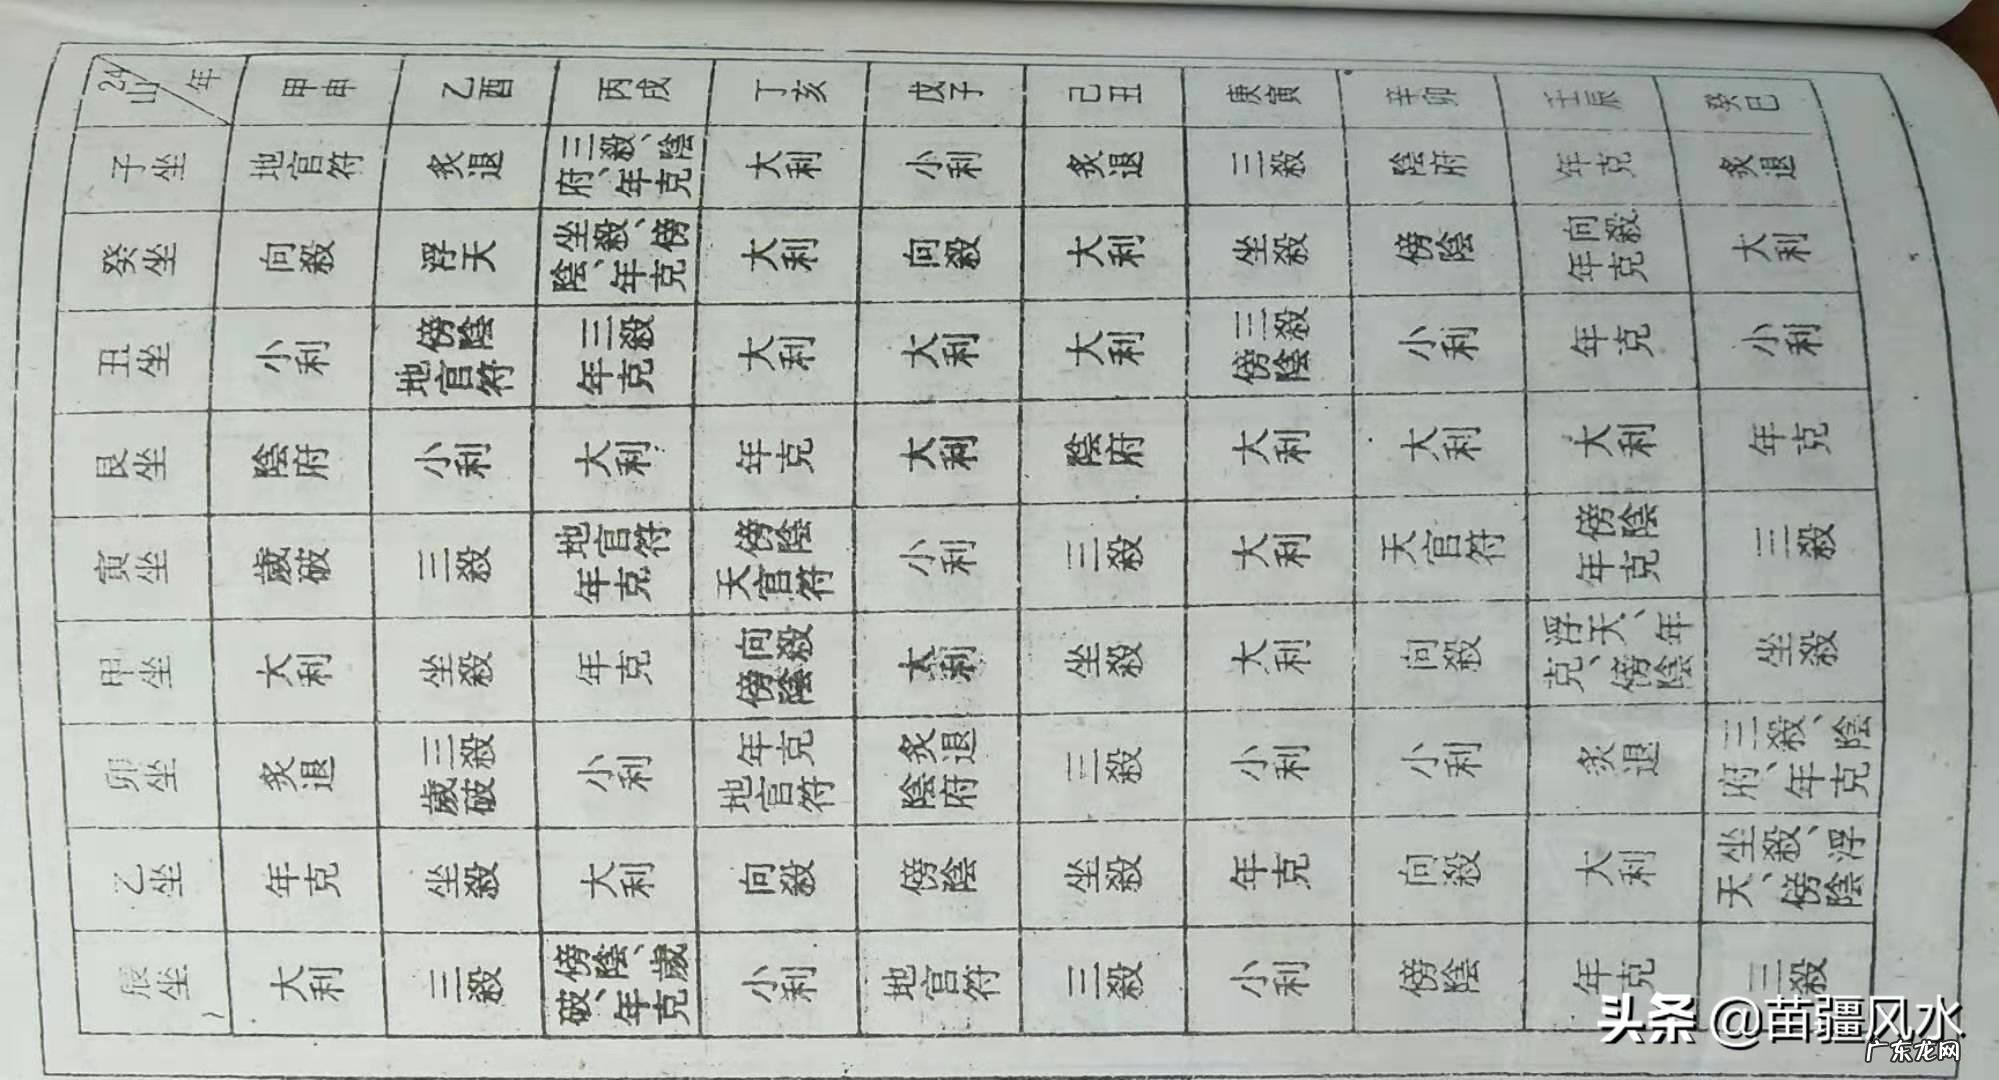 24山 年 甲申 乙酉 丙戌 丁亥 戊子 己丑 庚寅 辛卯 壬辰 癸巳
子坐 地官符 炙退 三殺、陰府、年克 大利 小利 炙退 三殺 陰府 年克 炙退
癸坐 向殺 浮天 坐殺、傍陰、年克 大利 向殺 大利 坐殺 傍陰 向殺年克 大利
丑坐 小利 傍陰地官符 三殺年克 大利 大利 大利 三殺傍陰 小利 年克 小利
艮坐 陰府 小利 大利 年克 大利 陰府 大利 大利 大利 年克
寅坐 歲破 三殺 地官符年克 傍陰天官符 小利 三殺 大利 天官符 傍陰年克 三殺
甲坐 大利 坐殺 年克 向殺傍陰 大利 坐殺 大利 向殺 浮天、年克、傍陰 坐殺
卯坐 炙退 三殺歲破 小利 年克地官符 炙退陰府 三殺 小利 小利 炙退 三殺、陰府、年克
乙坐 年克 坐殺 大利 向殺 傍陰 坐殺 年克 向殺 大利 坐殺、浮天、傍陰
辰坐 大利 三殺 傍陰、歲破、年克 小利 地官符 三殺 小利 傍陰 年克 三殺
头条 @苗疆风水
广东龙网